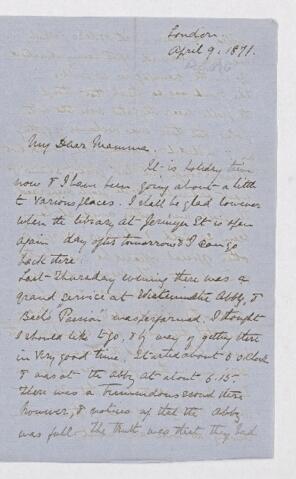 London
April 9, 1871.
My Dear Mamma.
It is holiday time
now & I have been going about a little
to various places. I shall be glad however
when the library at Jermyn St is open
again day after tomorrow & I can go
back there.
Last Thursday evening there was a
grand service at Westminster Abby, &
Bach's "Passion" was performed. I thought
I should like to go, & by way of getting there
in very good time. Started about 6 o'clock
& was at the abby at about 6.15.
There was a tremendous crowd there
however, & notices up that the Abby
was full. The truth was that they had